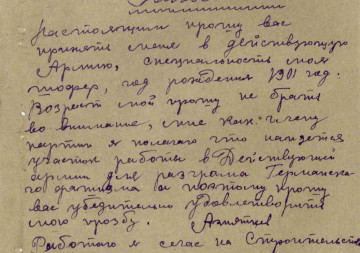 Настоящим прошу вас
принять меня в действующую
Армию, специальность моя
шофер, год рождения 1901 год.
Возраст мой прошу не брать
во внимание, мне как члену
партии я полагаю что найдется
участок работы в Действующей
армии для разгрома Германска-
го фашизма и поэтому прошу
вас убедительно удовлетворить
мою прозбу.
Работаю я сечас на Строительстве